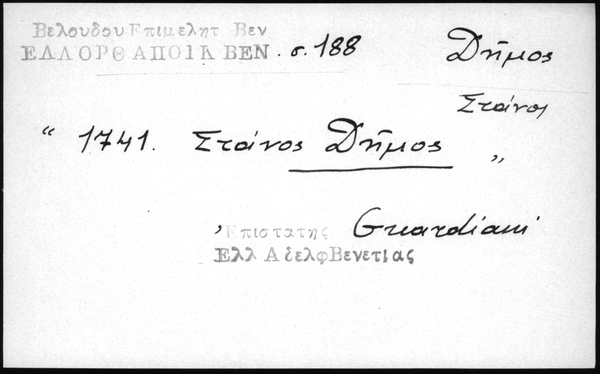 Βελουδου Επιμελητ Βεν
ΕΛΛΟΡΘ ΑΠΟΙΚ ΒΕΝ . σ. 188 Δῆμος
Στάνος
" 1741. Στάνος Δῆμος "
, Επιστατης Guardiani
Ελλ ΑδελφΒενετίας